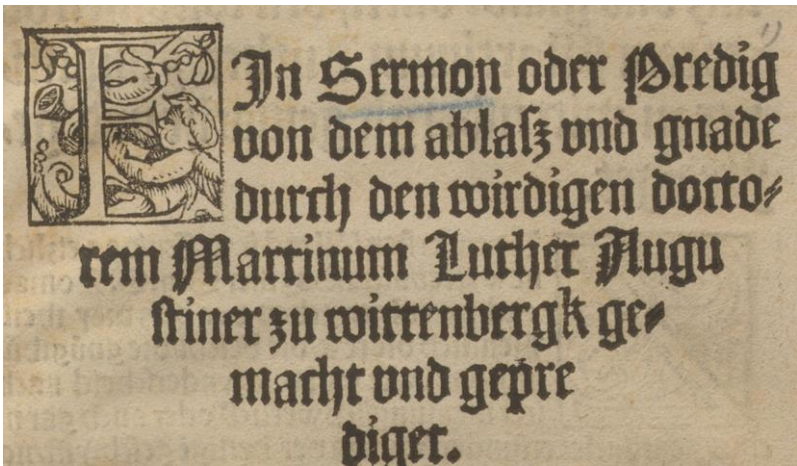 EIn Sermon oder Predig
von dem ablasz vnd gnade
durch den wirdigen docto⸗
rem Martinum Luther Augu
stiner zu wittenbergk ge⸗
macht vnd gepre
diget.